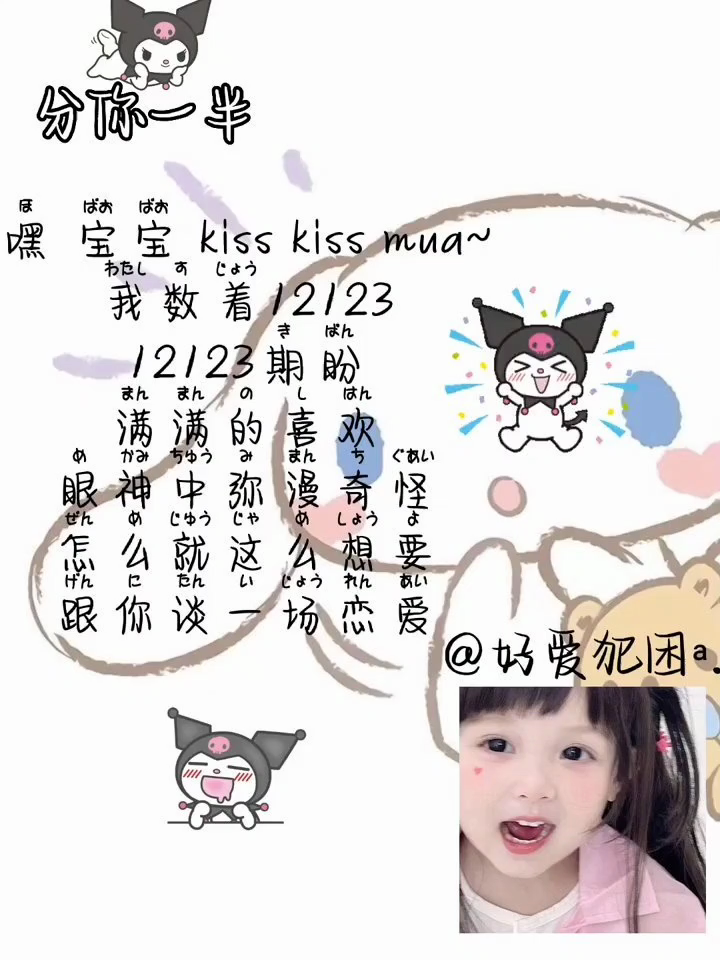 分你一半
ほ ばお ばお
嘿 宝 宝 kiss kiss mua~
わたし す じょう
我 数 着 12123
き ばん
12123 期 盼
まん まん の し はん
满 满 的 喜 欢
め かみ ちゅう み まん ち ぐあい
眼 神 中 弥 漫 奇 怪
ぜん め じゅう じゃ め しょう よ
怎 么 就 这 么 想 要
げん に たん い じょう れん あい
跟 你 谈 一 场 恋 爱
@好爱犯困a.